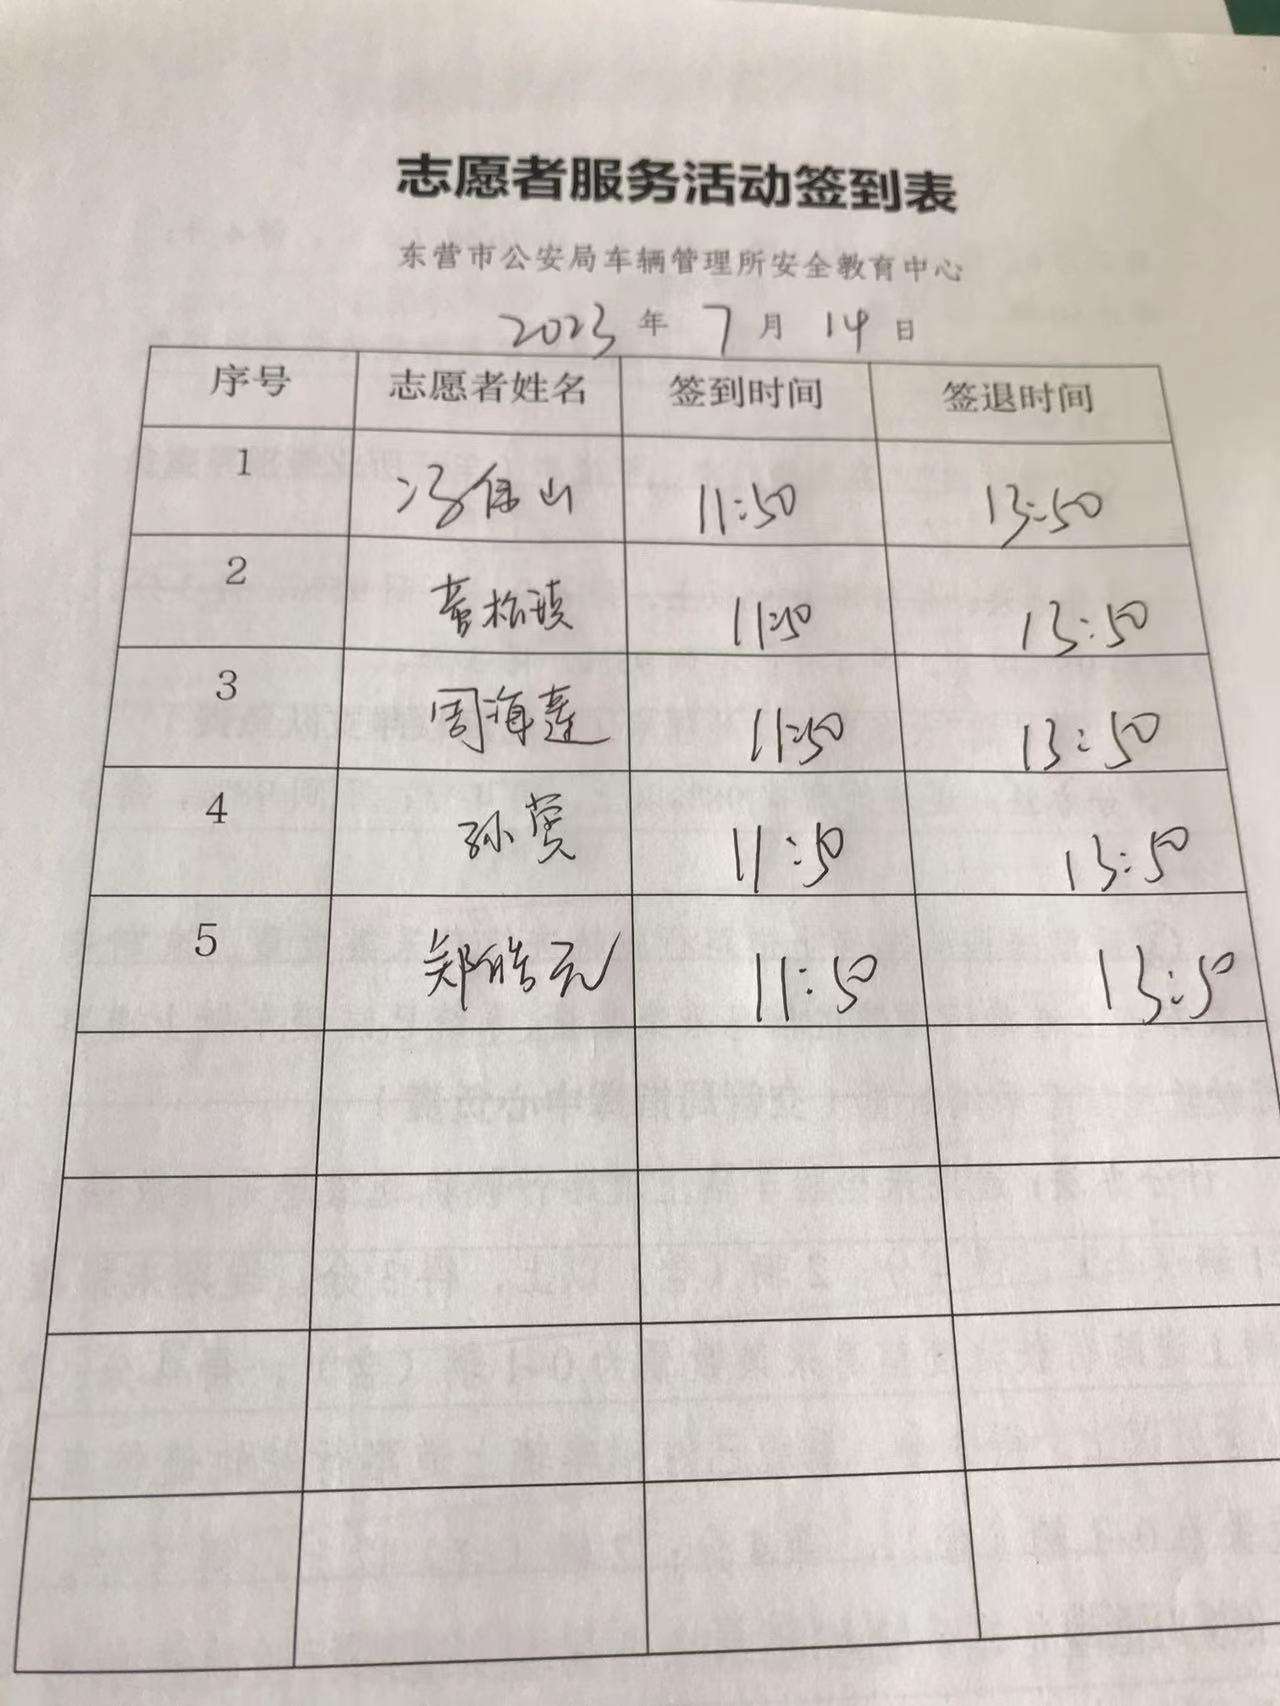 志愿者服务活动签到表
东营市公安局车辆管理所安全教育中心
2023 年 7 月 14 日
序号 志愿者姓名 签到时间 签退时间
1 冯保山 11:50 13:50
2 11:50 13:50
3 周海莲 11:50 13:50
4 孙莹 11:50 13:50
5 郑皓元 11:50 13:50